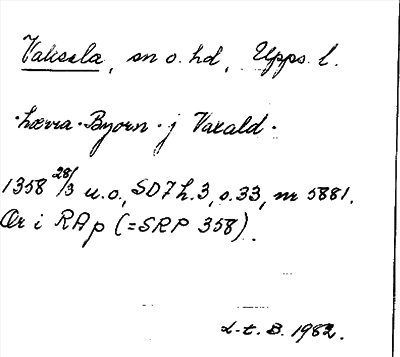 Vaksala, sn o. hd, Upps. l.
·hærra·Byorn·j Vaxald·
1358 28/3 u.o., SD 7 h. 3, s. 33, nr 5881.
Or i RAp (=SRP 358).
L-t. B. 1982.